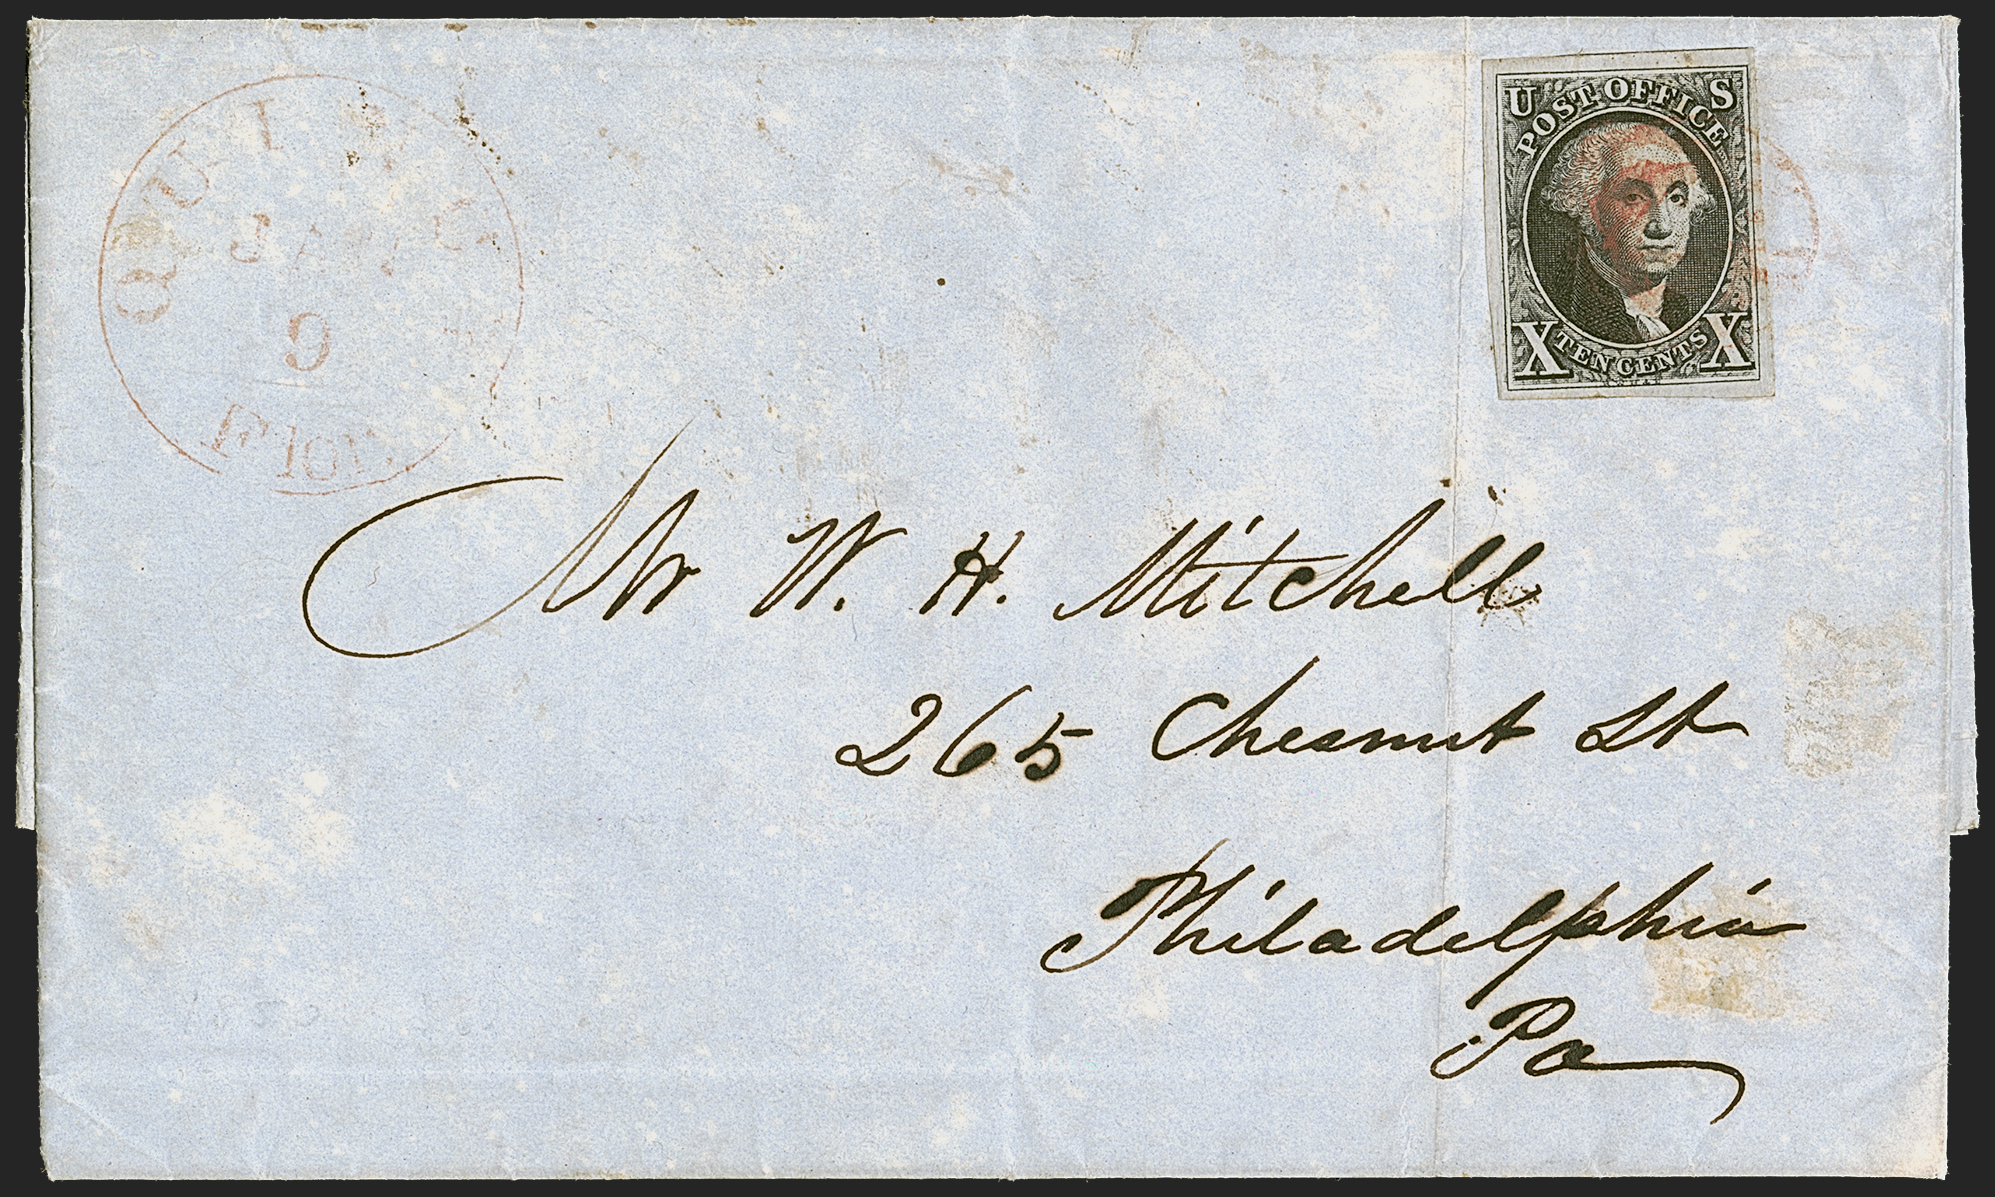 U S
POST OFFICE
X TEN CENTS X
JAN
9
Mr W. H. Mitchell
265 Chesnut St
Philadelphia
Pa